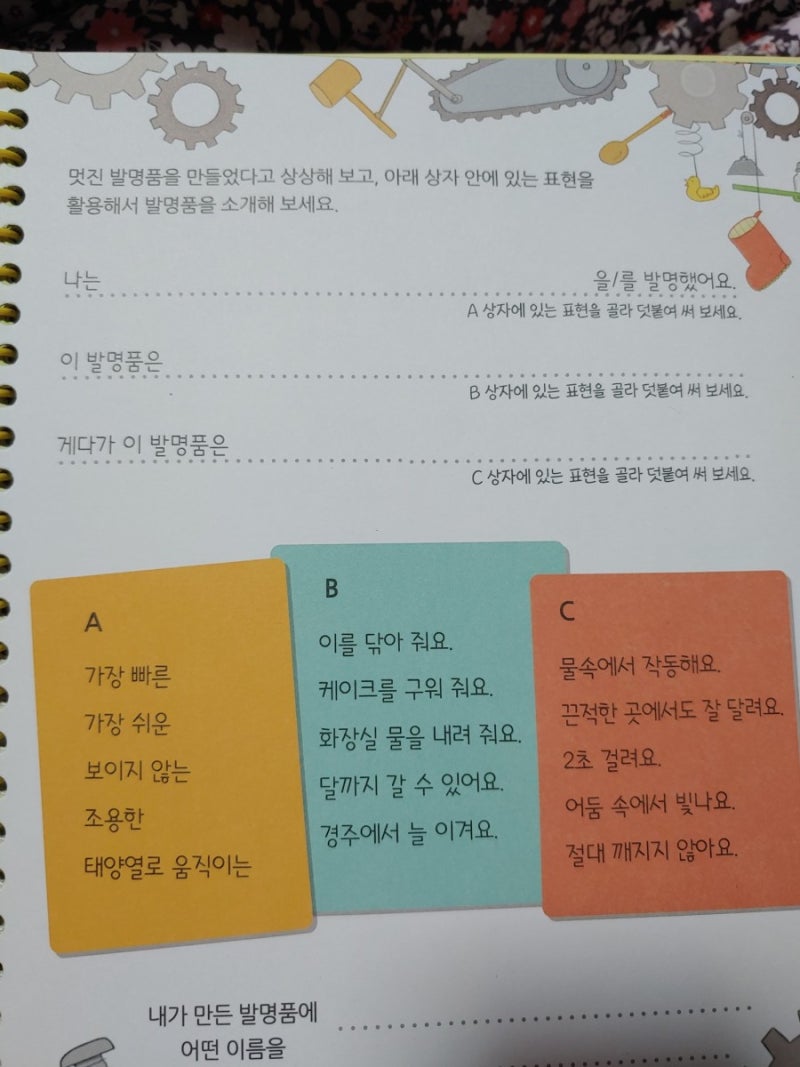 멋진 발명품을 만들었다고 상상해 보고, 아래 상자 안에 있는 표현을
활용해서 발명품을 소개해 보세요.
나는 을/를 발명했어요.
A 상자에 있는 표현을 골라 덧붙여 써 보세요.
이 발명품은
B 상자에 있는 표현을 골라 덧붙여 써 보세요.
게다가 이 발명품은
C 상자에 있는 표현을 골라 덧붙여 써 보세요.
A
가장 빠른
가장 쉬운
보이지 않는
조용한
태양열로 움직이는
B
이를 닦아 줘요.
케이크를 구워 줘요.
화장실 물을 내려 줘요.
달까지 갈 수 있어요.
경주에서 늘 이겨요.
C
물속에서 작동해요.
끈적한 곳에서도 잘 달려요.
2초 걸려요.
어둠 속에서 빛나요.
절대 깨지지 않아요.
내가 만든 발명품에
어떤 이름을